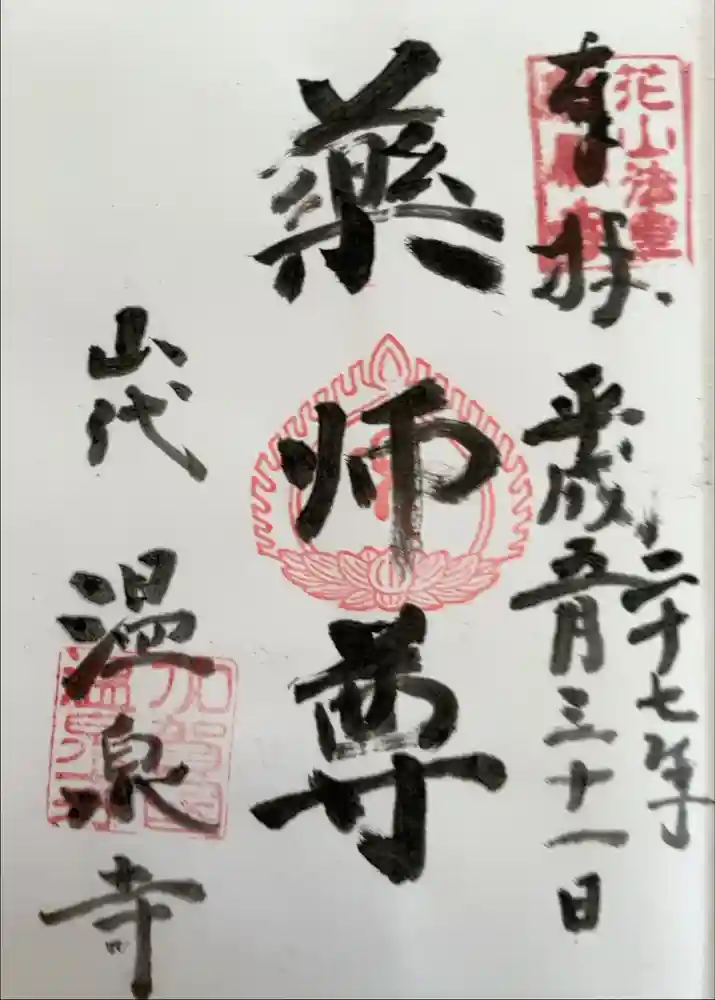 奉拝
平成二十七年
五月三十一日
薬師尊
山代
温泉寺
花山法皇
加賀国
温泉寺